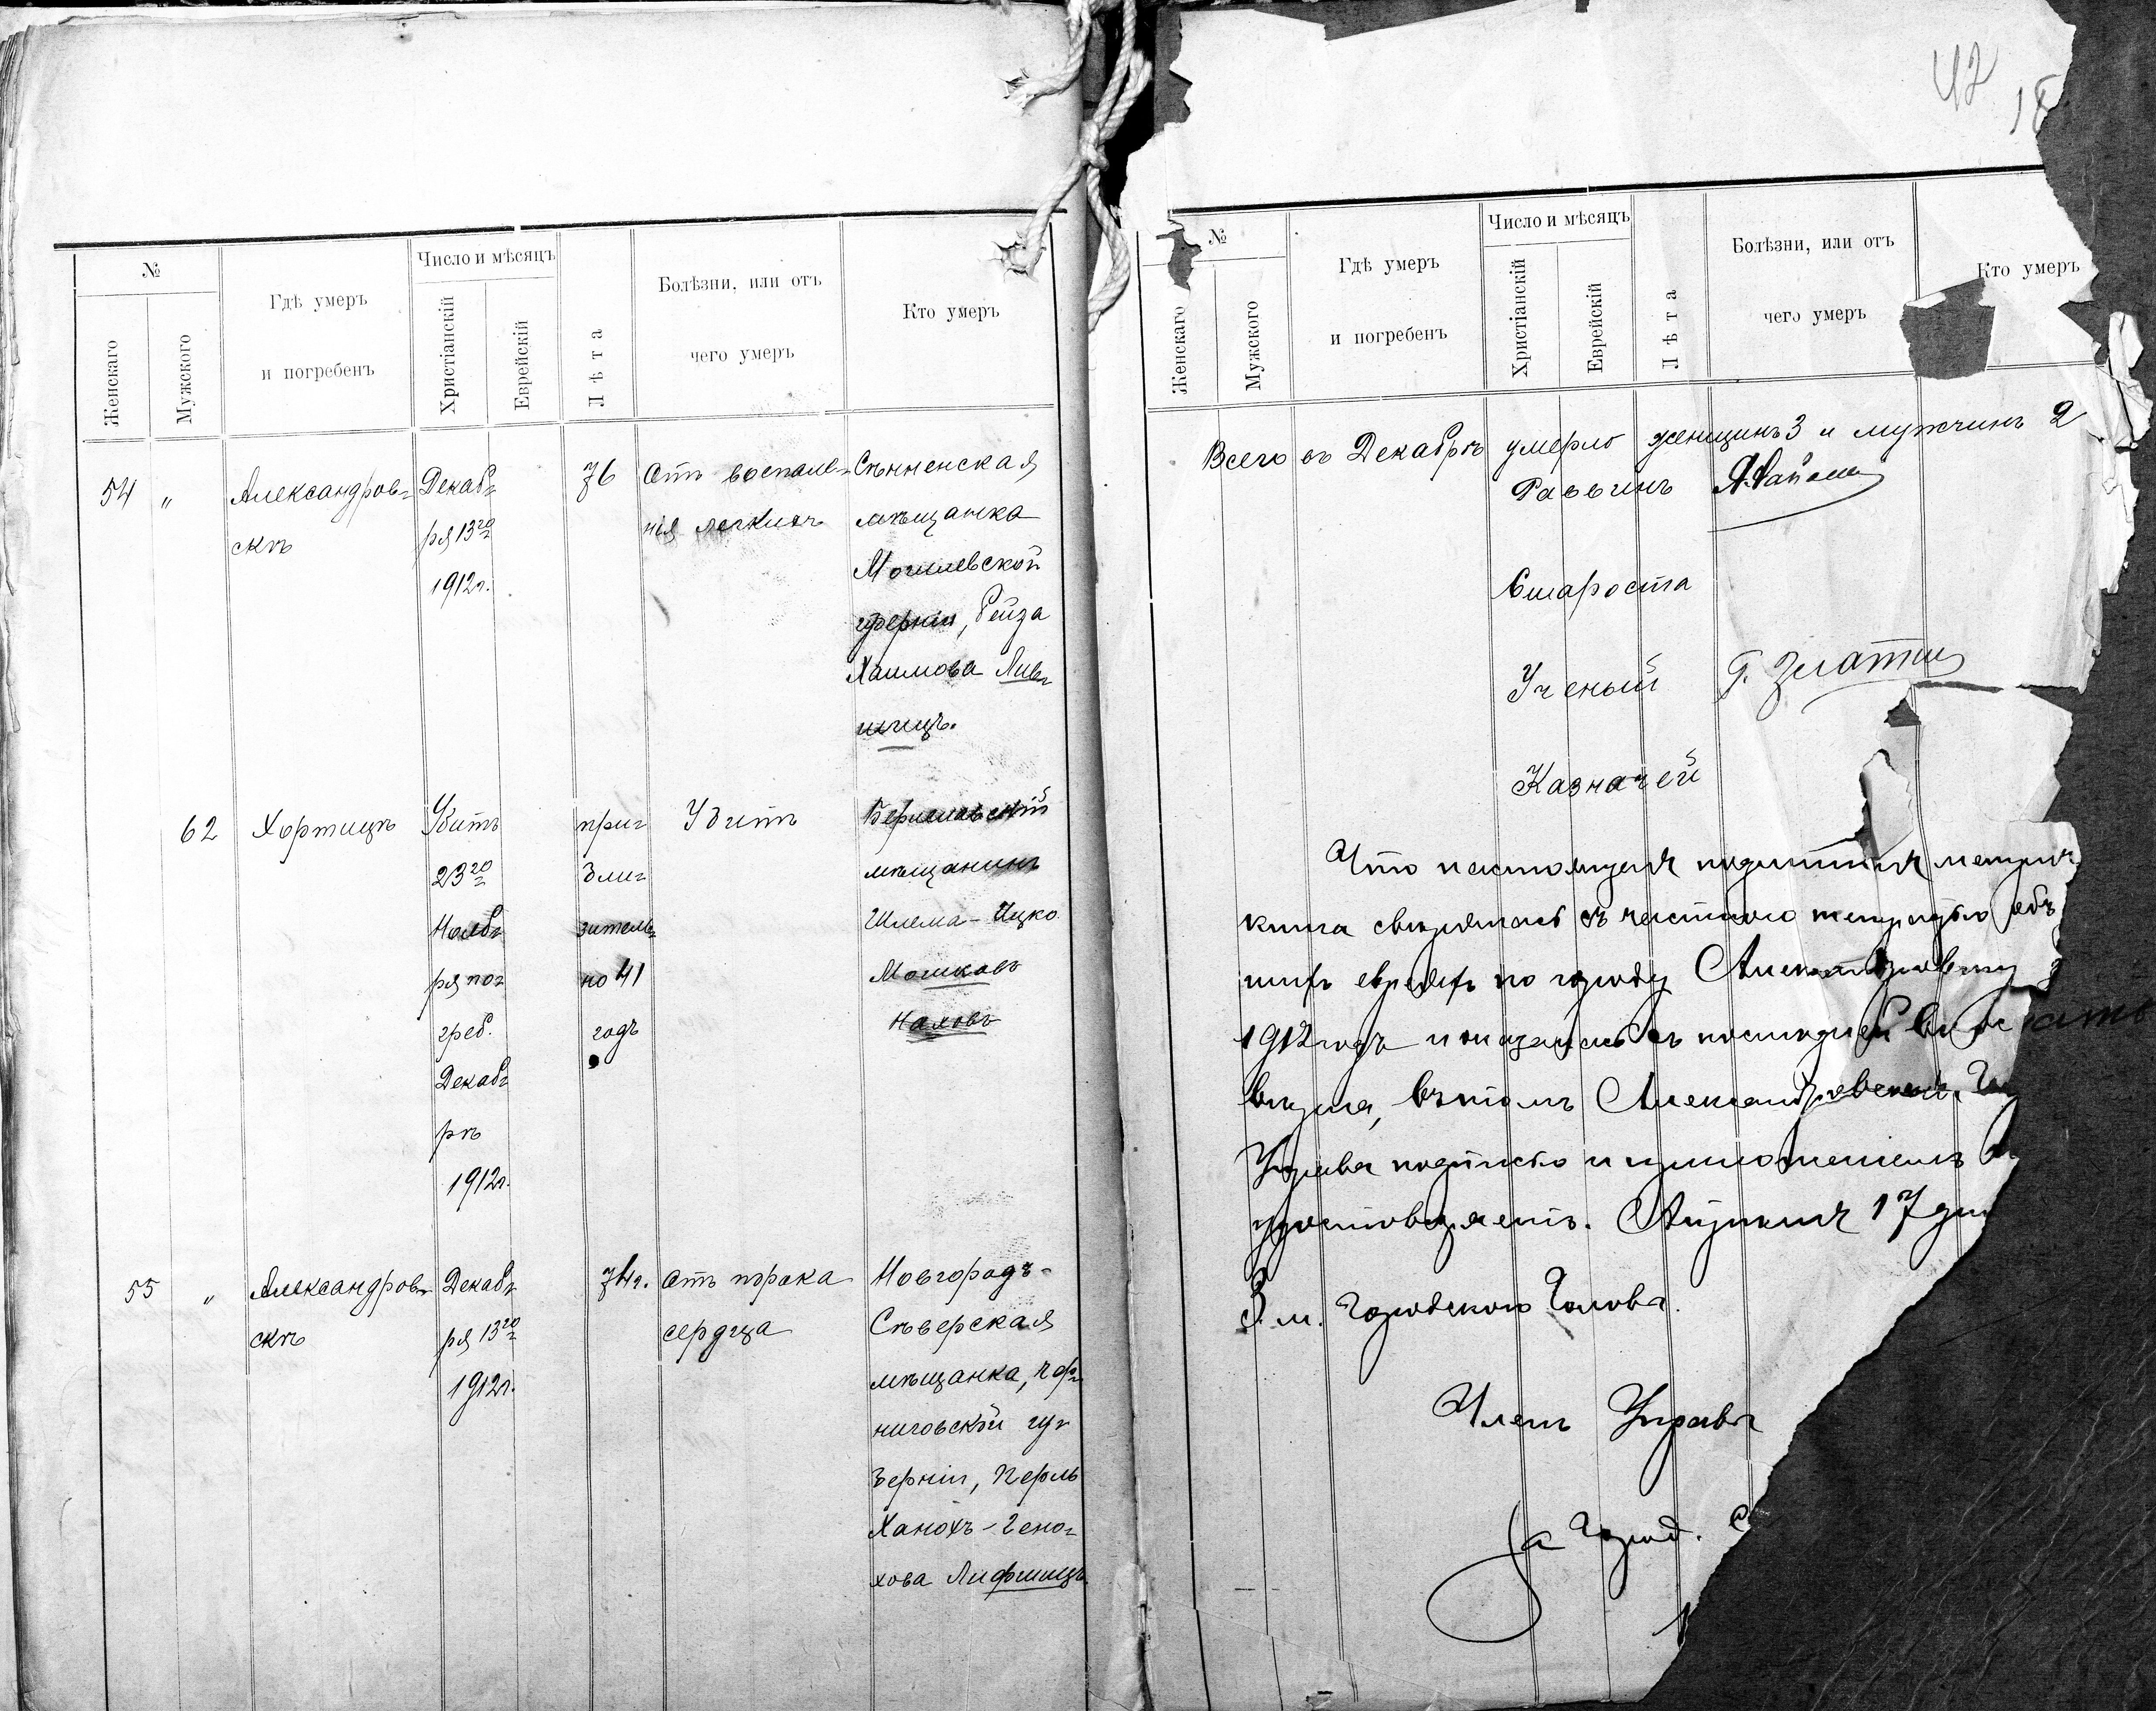 №
Женскаго
Мужского
Гдѣ умеръ
и погребенъ
Число и мѣсяцъ
Христіанскій
Еврейскій
Лѣта
Болѣзни, или отъ
чего умеръ
Кто умеръ
54 "
Александров-
скъ
Декаб-
ря 13го
1912г.
76
Отъ воспале-
нія легкихъ
Сѣнненская
мѣщанка
Могилевской
губерніи, Рейза
Хаимова Лив-
шицъ.
62
Хортицѣ
Убитъ
23го
Нояб-
ря пог-
греб.
Декаб-
рѣ
1912г.
при-
бли-
зитель-
но 41
годъ
Убитъ
Бериславскій
мѣщанинъ
Шлема-Ицко
Мошковъ
Наховъ
55 "
Александров-
скъ
Декаб-
ря 13го
1912г.
74г.
Отъ порока
сердца
Новгородъ-
Сѣверская
мѣщанка, Чер-
ниговской гу-
берніи, Перль
Ханохъ-Гено-
хова Лифшицъ
42
18
№
Женскаго
Мужского
Гдѣ умеръ
и погребенъ
Число и мѣсяцъ
Христіанскій
Еврейскій
Лѣта
Болѣзни, или отъ
чего умеръ
Кто умеръ
Всего въ Декабрѣ умерло женщинъ 3 и мужчинъ 2
Раввинъ
Староста
Ученый Г. Златин
Казначей
Что настоящая подлинная метрич
книга свѣрялась съ частною тетрадью объ
евреяхъ по городу Александровску з
1912 годъ и оказалась съ послѣдней
вѣрна, въ томъ Александровская Го
Управа подписью и приложеніемъ
удостовѣряетъ. Апрѣля 17 дн
З. м. Городского Головы
Членъ Управы
За Город. С